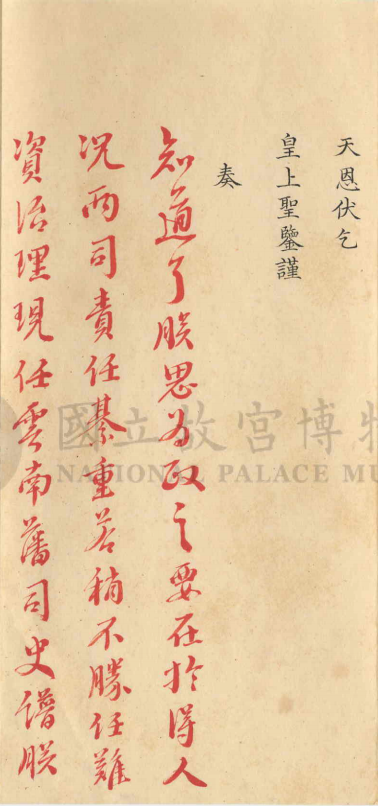 天恩伏乞
皇上聖鑒謹
奏
知道了朕思為政之要在於得人
況兩司責任綦重若稍不勝任難
資治理現任雲南藩司史譜朕
國立故宮博物
NATIONAL PALACE MU